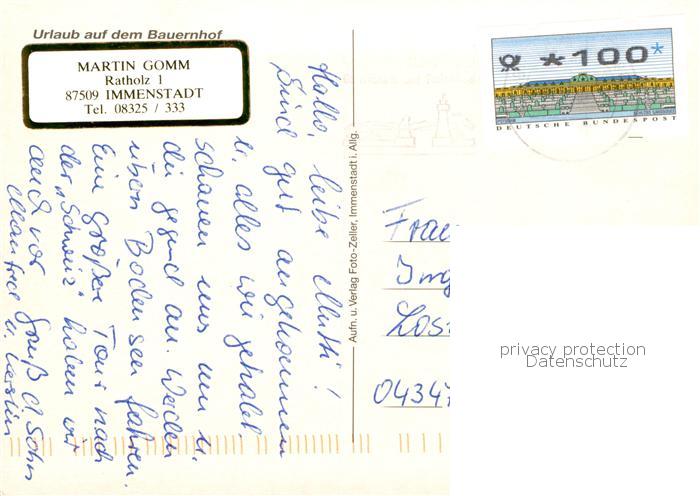 Urlaub auf dem Bauernhof
MARTIN GOMM
Ratholz 1
87509 IMMENSTADT
Tel. 08325 / 333
Hallo, liebe Mutti!
Sind gut angekommen
u. alles wie gehabt.
schauen uns um u.
die Gegend an. Werden
übern Bodensee fahren.
Eine größere Tour nach
der "Schweiz" haben wir
auch vor. Gruß d. Sohn
Manfred u. Kerstin
Aufn. u. Verlag Foto-Zeller, Immenstadt i. Allg.
*100*
DEUTSCHE BUNDESPOST
Frau
Ing
Los
04347
privacy protection
Datenschutz